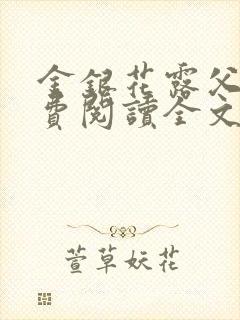 金銀花露父
費閱讀全文
萱草妖花